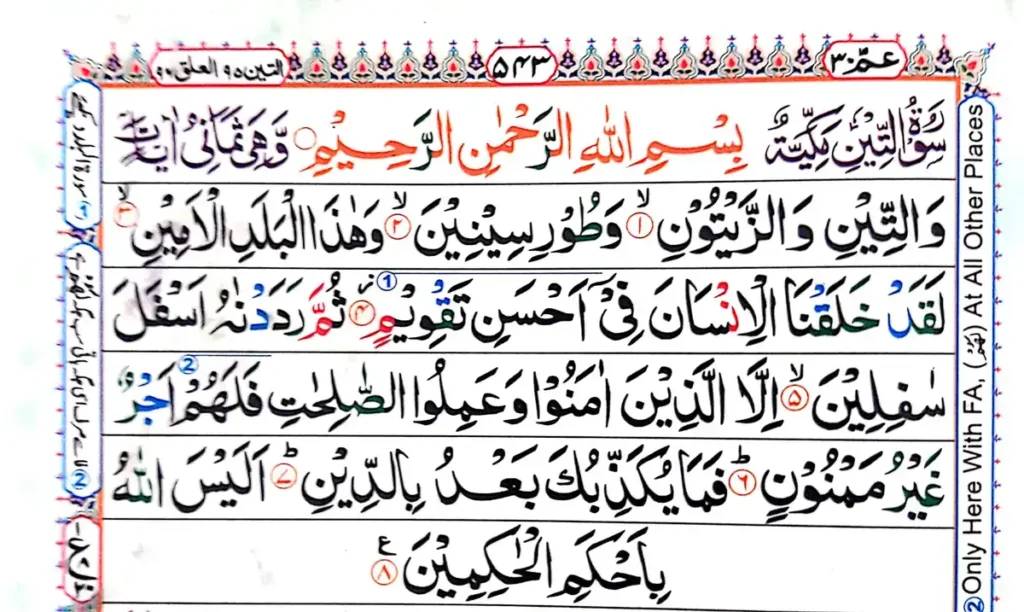 عـمّ ٣٠
٥٤٣
التين ٩٥ العلق ٩٦
سُوْرَةُ التِّيْنِ مَكِّيَّةٌ بِسْمِ اللهِ الرَّحْمٰنِ الرَّحِيْمِ وَّهِيَ ثَمَانِيْ اٰيَاتٍ
وَالتِّيْنِ وَالزَّيْتُوْنِ ۙ﴿۱﴾ وَطُوْرِ سِيْنِيْنَ ۙ﴿۲﴾ وَهٰذَا الْبَلَدِ الْاَمِيْنِ ۙ﴿۳﴾
لَقَدْ خَلَقْنَا الْاِنْسَانَ فِيْٓ اَحْسَنِ تَقْوِيْمٍ ①﴿۴﴾ ثُمَّ رَدَدْنٰهُ اَسْفَلَ
سٰفِلِيْنَ ۙ﴿۵﴾ اِلَّا الَّذِيْنَ اٰمَنُوْا وَعَمِلُوا الصّٰلِحٰتِ ② فَلَهُمْ اَجْرٌ
غَيْرُ مَمْنُوْنٍ ؕ﴿۶﴾ فَمَا يُكَذِّبُكَ بَعْدُ بِالدِّيْنِ ؕ﴿۷﴾ اَلَيْسَ اللهُ
بِاَحْكَمِ الْحٰكِمِيْنَ ﴿۸﴾ ع
② Only Here With FA, (لَهُمْ) At All Other Places